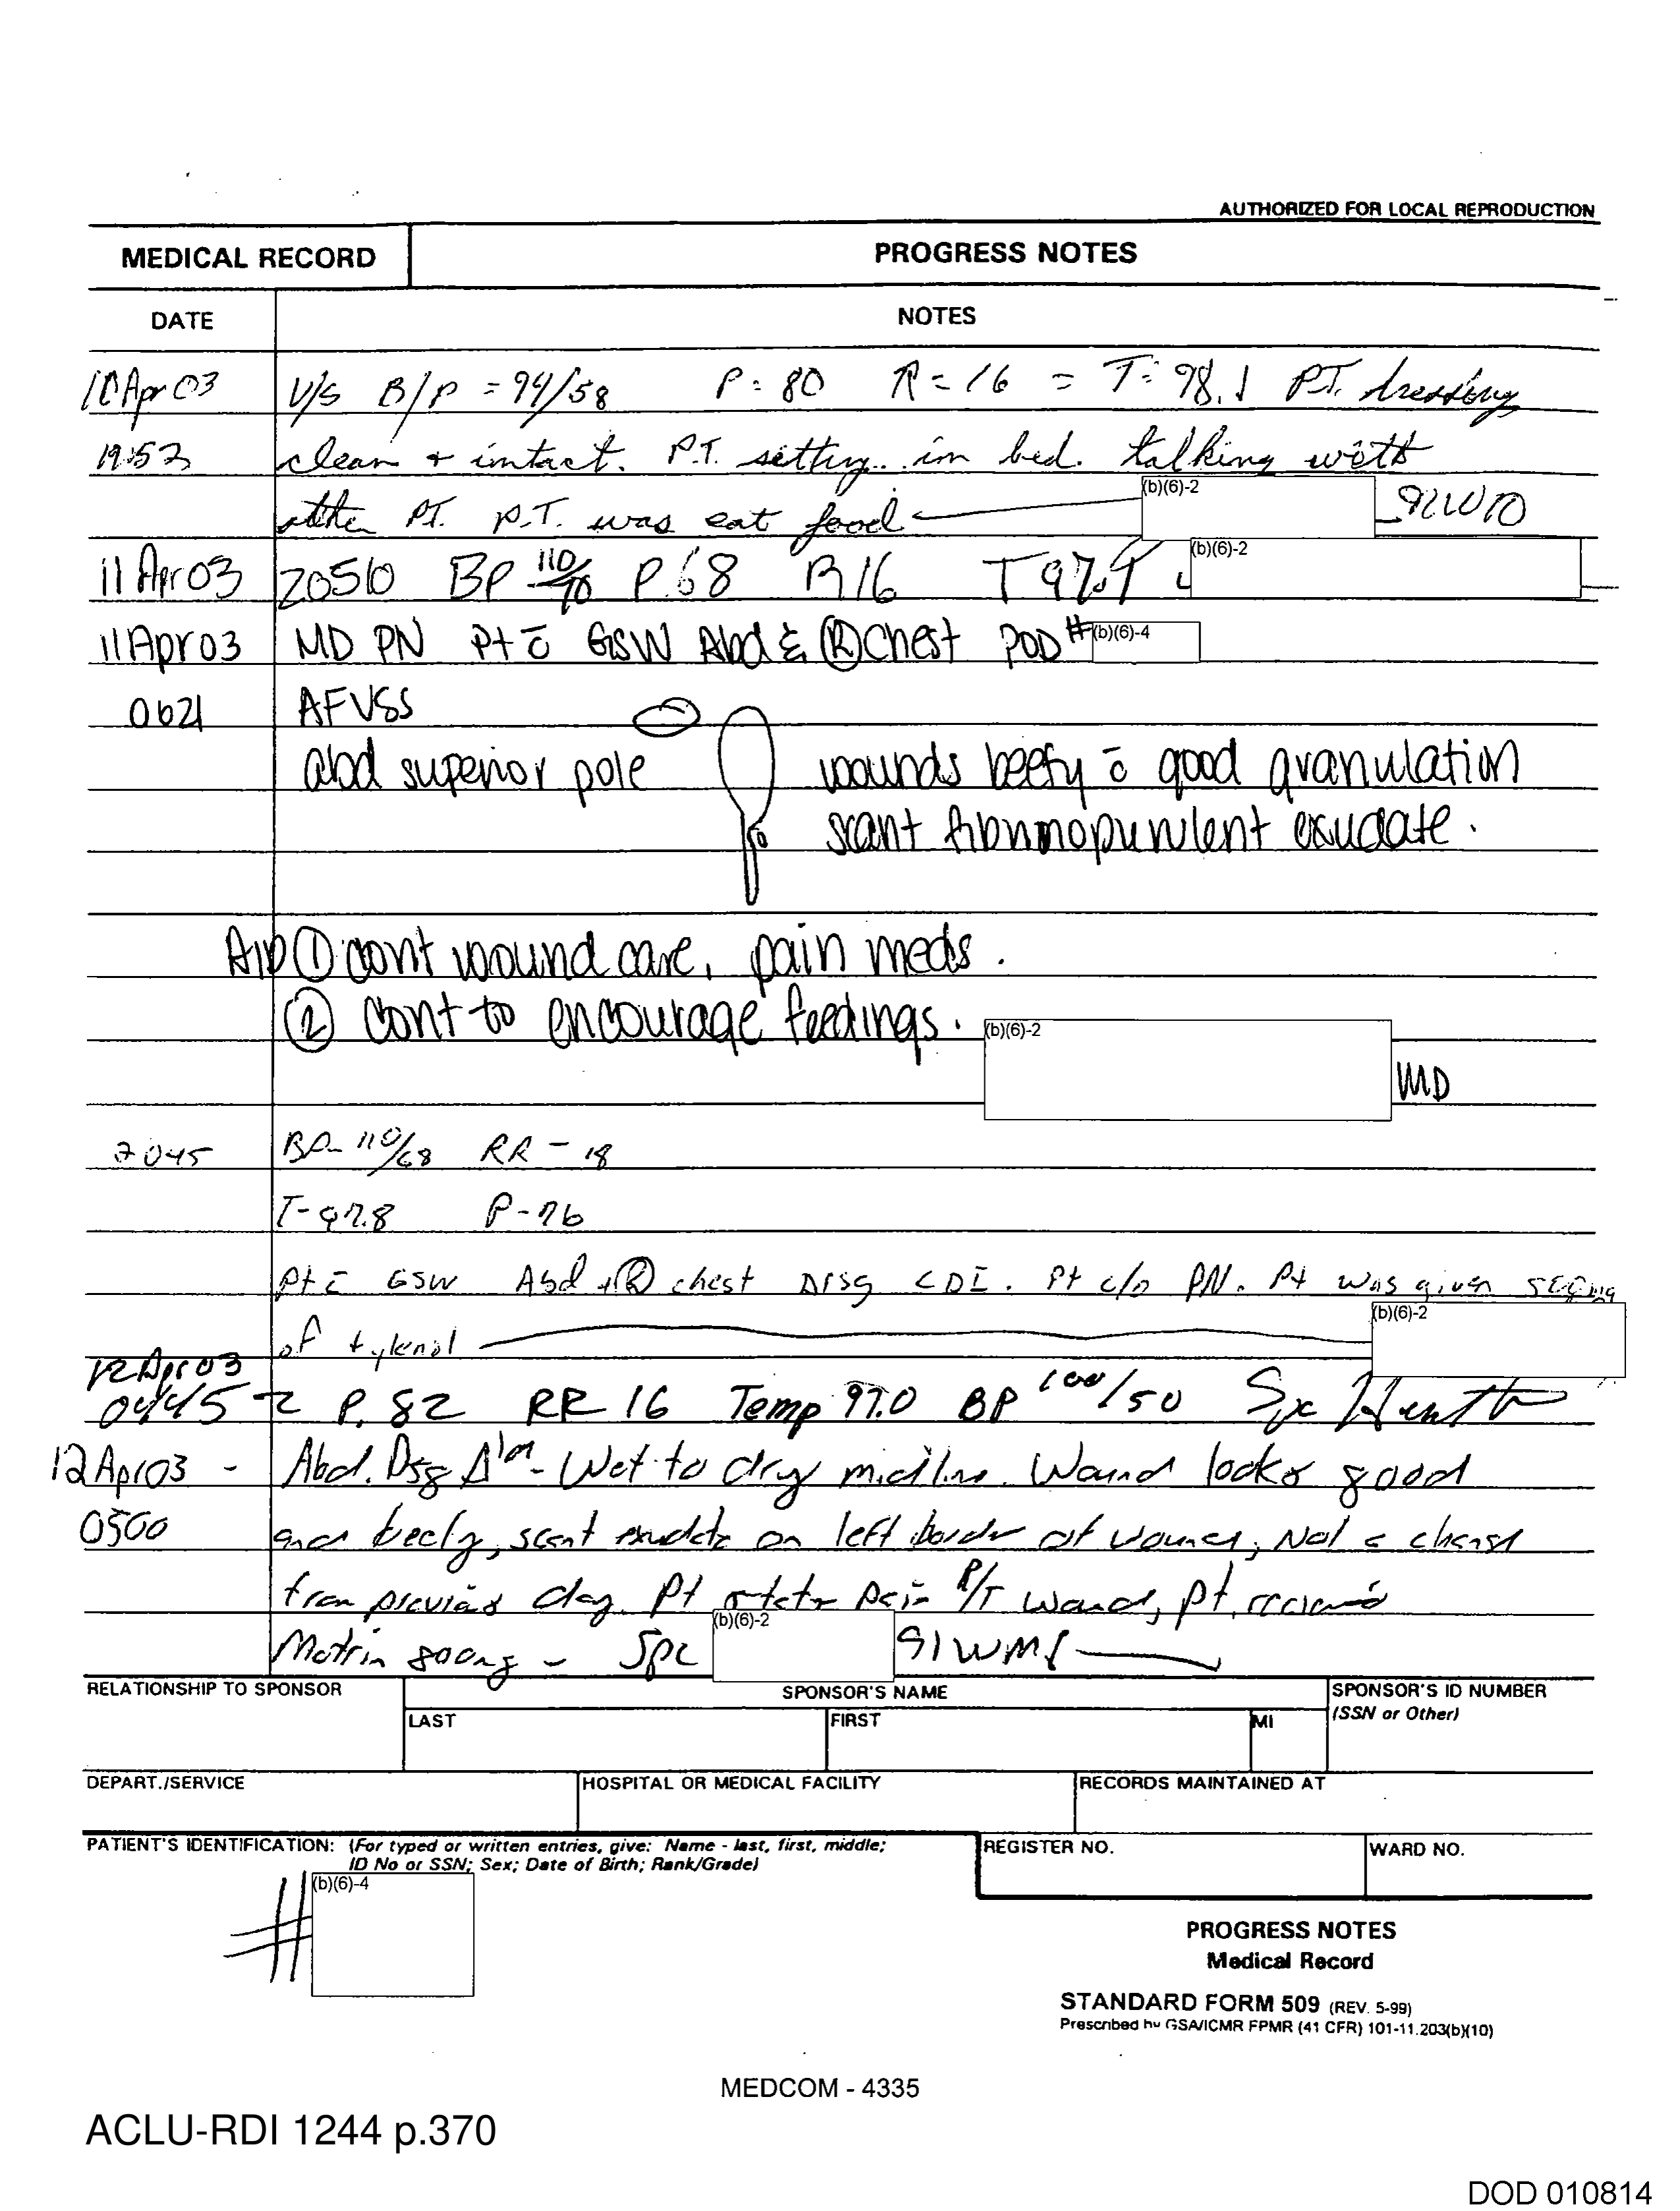 AUTHORIZED FOR LOCAL REPRODUCTION
MEDICAL RECORD
PROGRESS NOTES
DATE
NOTES
10 Apr 03 V/S B/P = 94/58 P = 80 R = 16 = T = 98.1 PT. dressing
19:52 clean + intact. P.T. setting in bed. talking with
other PT. P.T. was eat food (b)(6)-2
11 Apr 03 BP 110/70 P 68 R 16 T 97.9 (b)(6)-2
11 Apr 03 MD PN Pt c̄ GSW Abd & Ⓡ Chest POD # (b)(6)-4
0621 AFVSS
abd superior pole wounds beefy c̄ good granulation
scant fibrinopurulent exudate.
A/P ① cont wound care, pain meds.
② cont to encourage feedings. (b)(6)-2
MD
2045 BP- 110/68 RR - 18
T- 97.8 P- 76
Pt c̄ GSW Abd + Ⓡ chest Drsg CDI. Pt c/o PN. Pt was given
of tylenol (b)(6)-2
12 Apr 03
0445 P. 82 RR 16 Temp 97.0 BP 100/50 Spc
12 Apr 03 - Abd. Dsg Δ - Wet to dry midline. Wound looks good
0500 and beefy, scant exudate on left border of wound, Not a change
from previous day. Pt states pain R/T wound, pt. received
Motrin 800mg - Spc (b)(6)-2 91WM6
RELATIONSHIP TO SPONSOR
SPONSOR'S NAME
SPONSOR'S ID NUMBER
(SSN or Other)
LAST
FIRST
MI
DEPART./SERVICE
HOSPITAL OR MEDICAL FACILITY
RECORDS MAINTAINED AT
PATIENT'S IDENTIFICATION: (For typed or written entries, give: Name - last, first, middle;
ID No or SSN; Sex; Date of Birth; Rank/Grade)
REGISTER NO.
WARD NO.
# (b)(6)-4
PROGRESS NOTES
Medical Record
STANDARD FORM 509 (REV. 5-99)
Prescribed by GSA/ICMR FPMR (41 CFR) 101-11.203(b)(10)
MEDCOM - 4335
ACLU-RDI 1244 p.370
DOD 010814